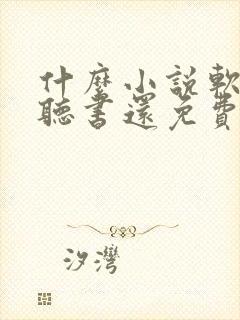 什麼小說軟
聽書還免費
汐灣